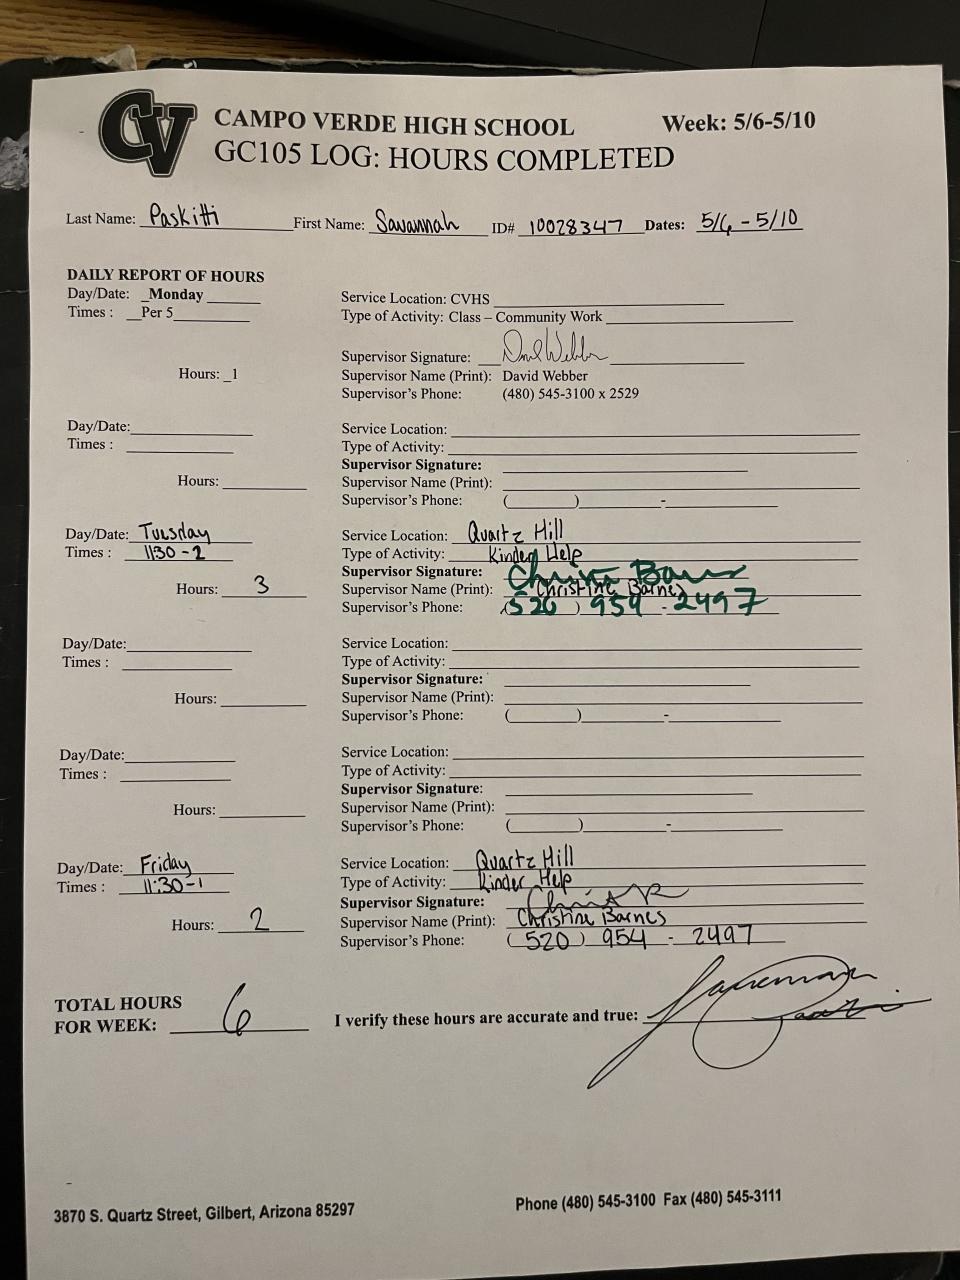 CV
CAMPO VERDE HIGH SCHOOL Week: 5/6-5/10
GC105 LOG: HOURS COMPLETED
Last Name: Paskitti First Name: Savannah ID# 10028347 Dates: 5/6 - 5/10
DAILY REPORT OF HOURS
Day/Date: _Monday
Times : Per 5
Hours: _1
Service Location: CVHS
Type of Activity: Class – Community Work
Supervisor Signature: David Webber
Supervisor Name (Print): David Webber
Supervisor's Phone: (480) 545-3100 x 2529
Day/Date:
Times :
Hours:
Service Location:
Type of Activity:
Supervisor Signature:
Supervisor Name (Print):
Supervisor's Phone: ( ) -
Day/Date: Tuesday
Times : 11:30 - 2
Hours: 3
Service Location: Quartz Hill
Type of Activity: Kinder Help
Supervisor Signature:
Supervisor Name (Print): Christine Barnes
Supervisor's Phone: (520) 954 - 2497
Day/Date:
Times :
Hours:
Service Location:
Type of Activity:
Supervisor Signature:
Supervisor Name (Print):
Supervisor's Phone: ( ) -
Day/Date:
Times :
Hours:
Service Location:
Type of Activity:
Supervisor Signature:
Supervisor Name (Print):
Supervisor's Phone: ( ) -
Day/Date: Friday
Times : 11:30-1
Hours: 2
Service Location: Quartz Hill
Type of Activity: Kinder Help
Supervisor Signature:
Supervisor Name (Print): Christine Barnes
Supervisor's Phone: (520) 954 - 2497
TOTAL HOURS
FOR WEEK: 6 I verify these hours are accurate and true:
3870 S. Quartz Street, Gilbert, Arizona 85297 Phone (480) 545-3100 Fax (480) 545-3111